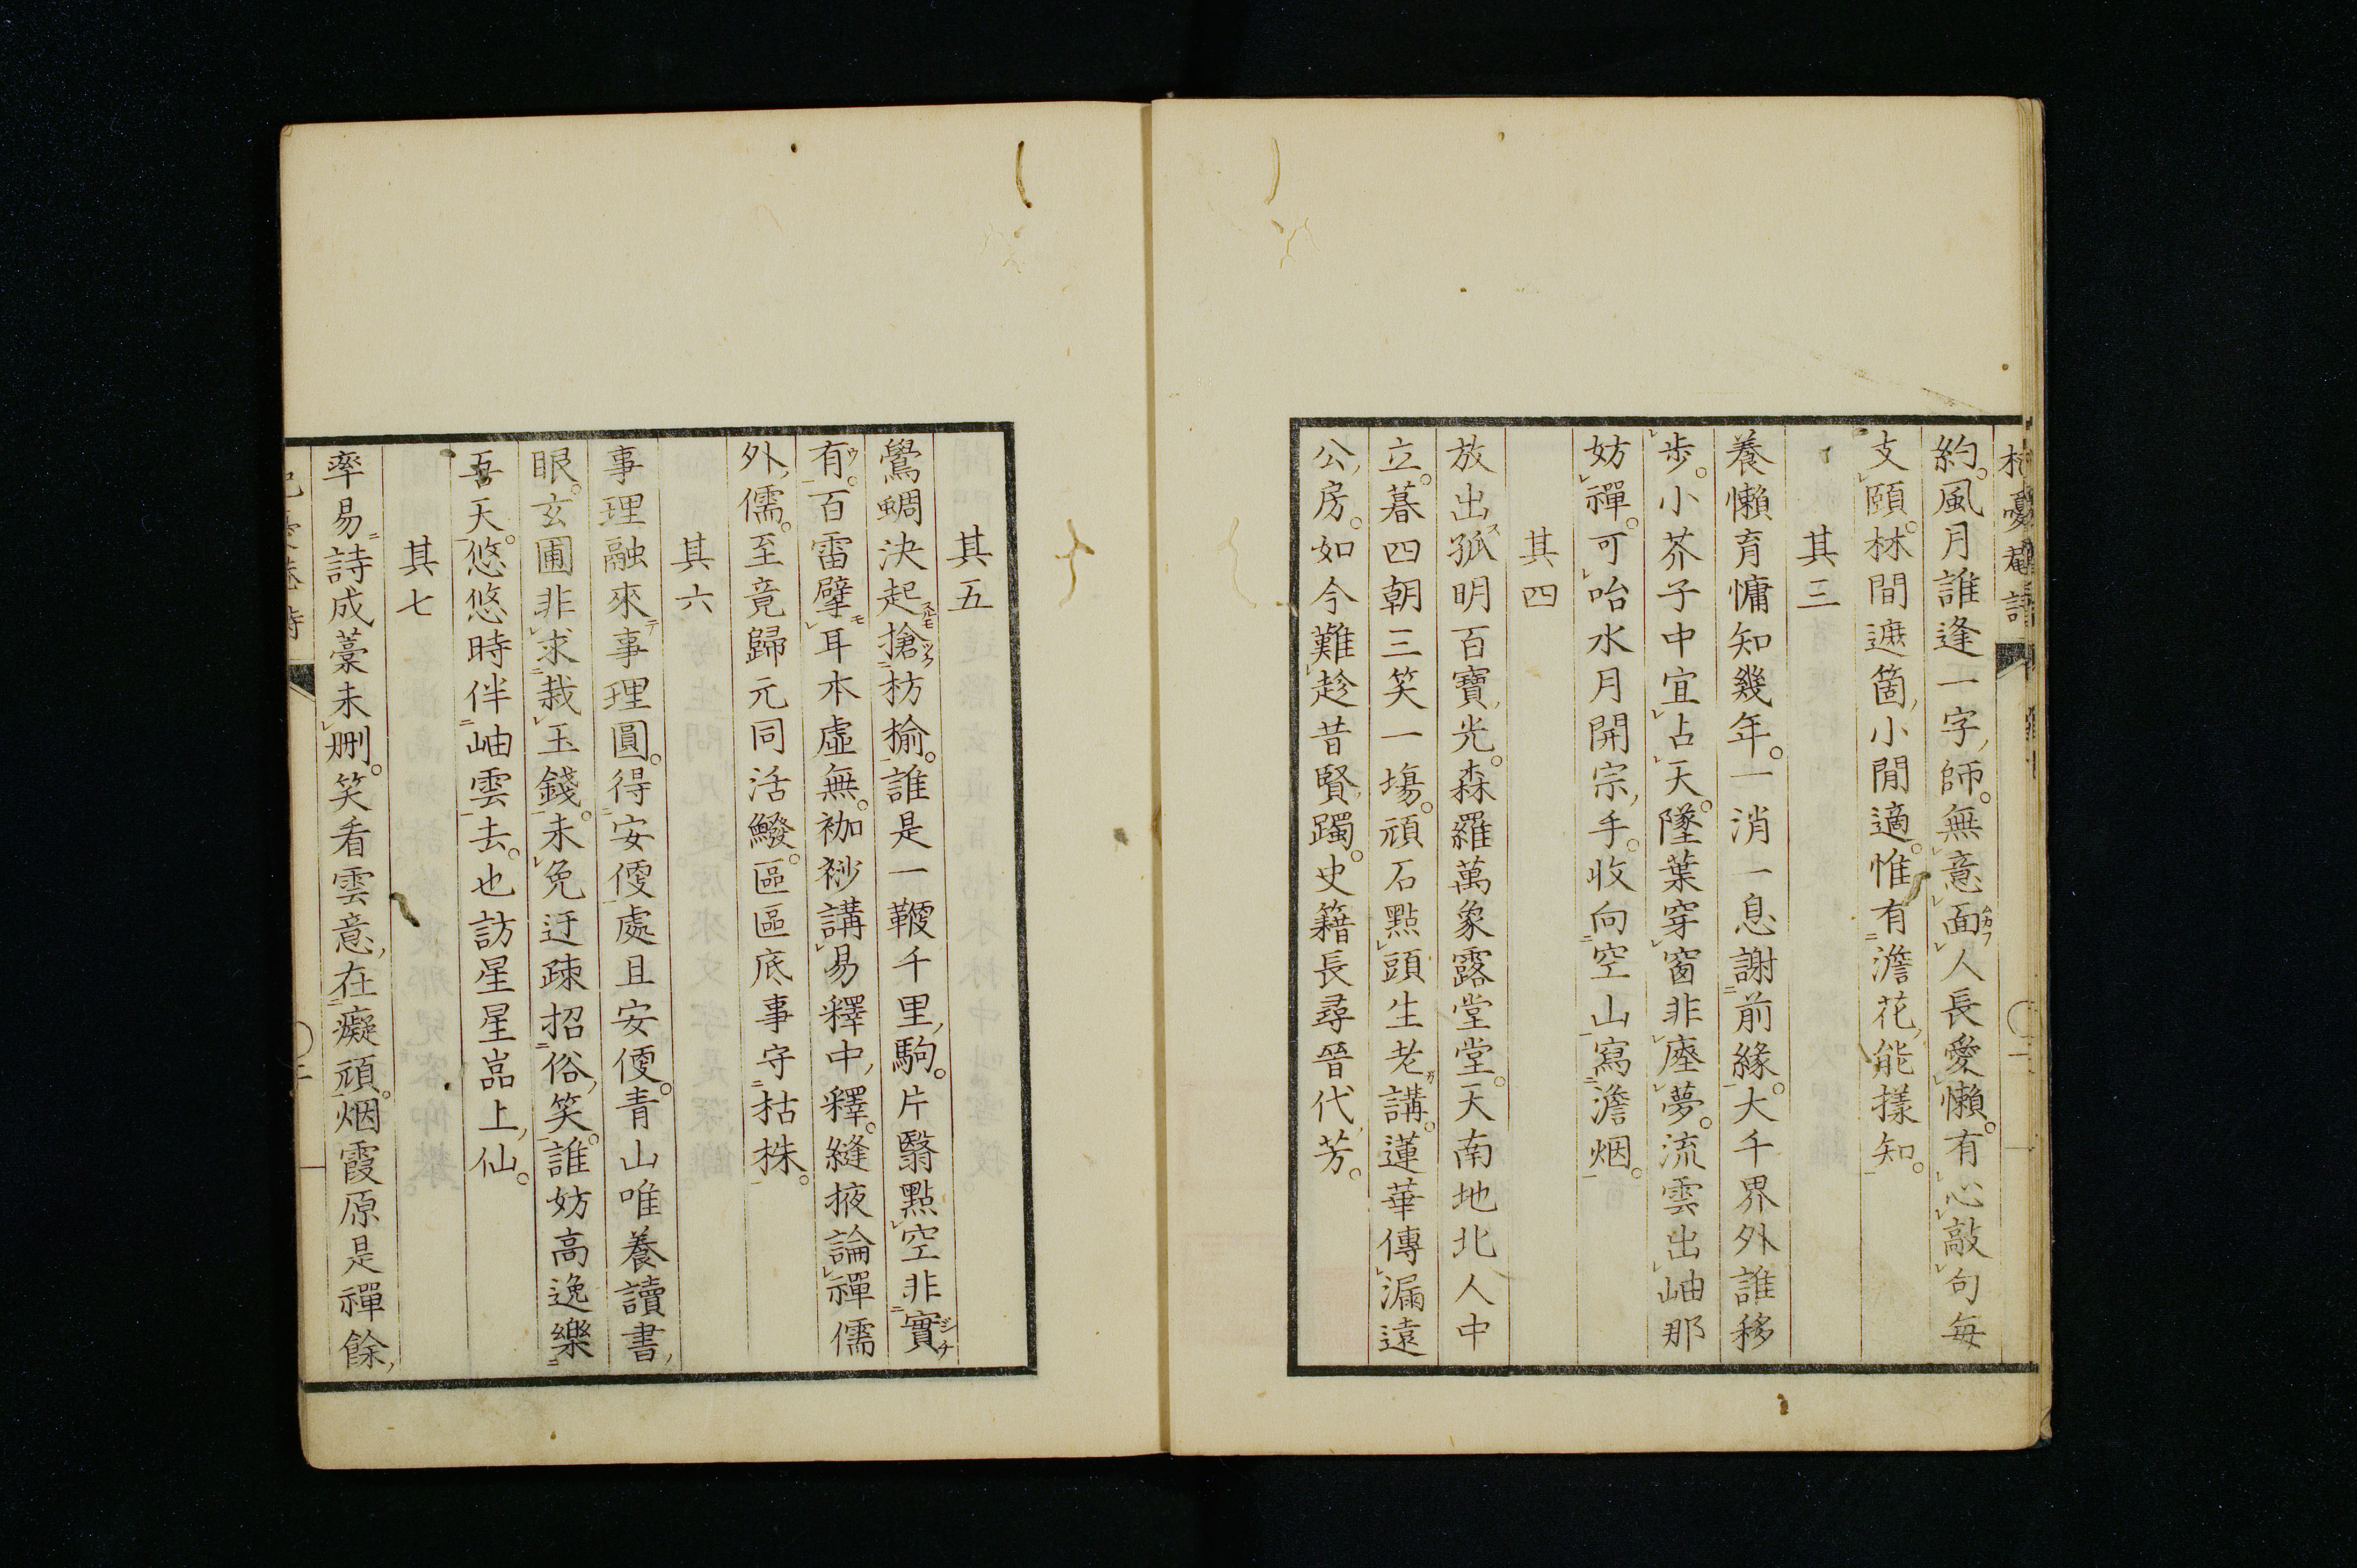 約。風月誰逢一字師。無意面人長愛懶。有心敲句每
支頤。林間遮箇小閒適。惟有澹花能樣知。
其三
養懶育慵知幾年。一消一息謝前緣。大千界外誰移
步。小芥子中宜占天。墜葉穿窗非座夢。流雲出岫那
妨禪。可咍水月開宗手。收向空山寫澹烟。
其四
放出孤明百寶光。森羅萬象露堂堂。天南地北人中
立。暮四朝三笑一場。頑石點頭生老講。蓮華傳漏遠
公房。如今難趁昔賢躅。史籍長尋晉代芳。
其五
鷽蜩決起搶枋楡。誰是一鞭千里駒。片翳點空非實
有。百雷擘耳本虛無。袈裟講易釋中釋。縫掖論禪儒
外儒。至竟歸元同活鱍。區區底事守枯株。
其六
事理融來事理圓。得安便處且安便。青山唯養讀書
眼。玄圃非求栽玉錢。未免迂疎招俗笑。誰妨高逸樂
吾天。悠悠時伴岫雲去。也訪星星嵓上仙。
其七
率易詩成藁未刪。笑看雲意在癡頑。烟霞原是禪餘